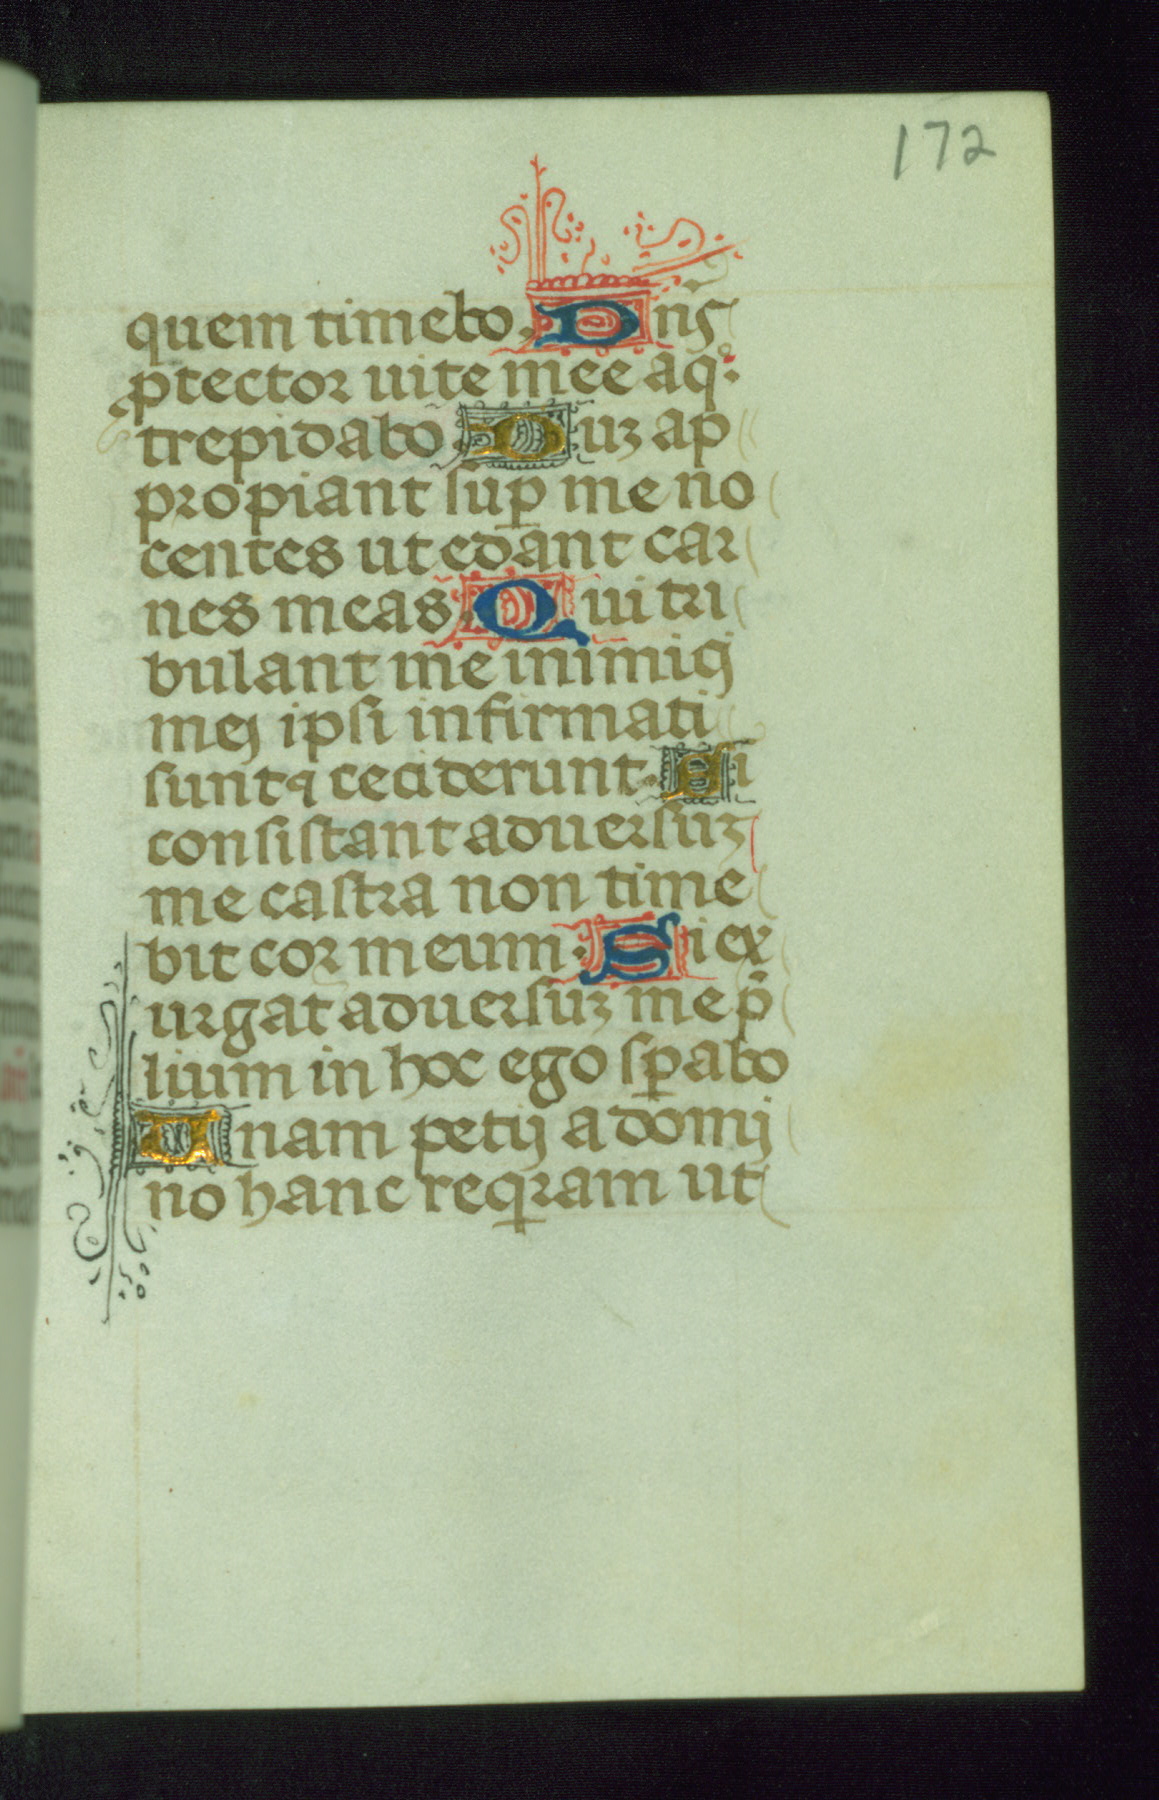 172
quem timebo. Dn̄s
ꝓtector uite mee a qͦ
trepidabo Duꝫ ap
propiant suꝑ me no
centes ut edant car
nes meas. Qui tri
bulant me inimici
mei ipsi infirmati
sunt ⁊ ceciderunt. Si
consistant aduersuꝫ
me castra non time
bit cor meum. Si ex
urgat aduersuꝫ me p̄
lium in hoc ego sꝑabo
Unam petij a domi
no hanc reqͥram ut